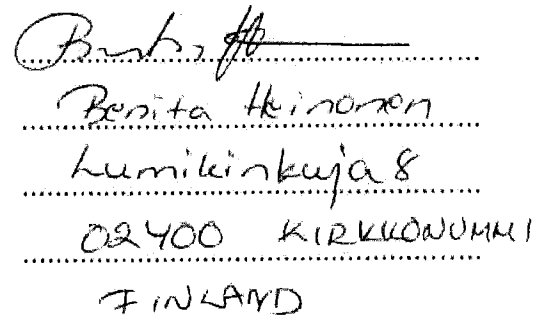 Benita Heinonen
Lumikinkuja 8
02400 KIRKKONUMMI
FINLAND